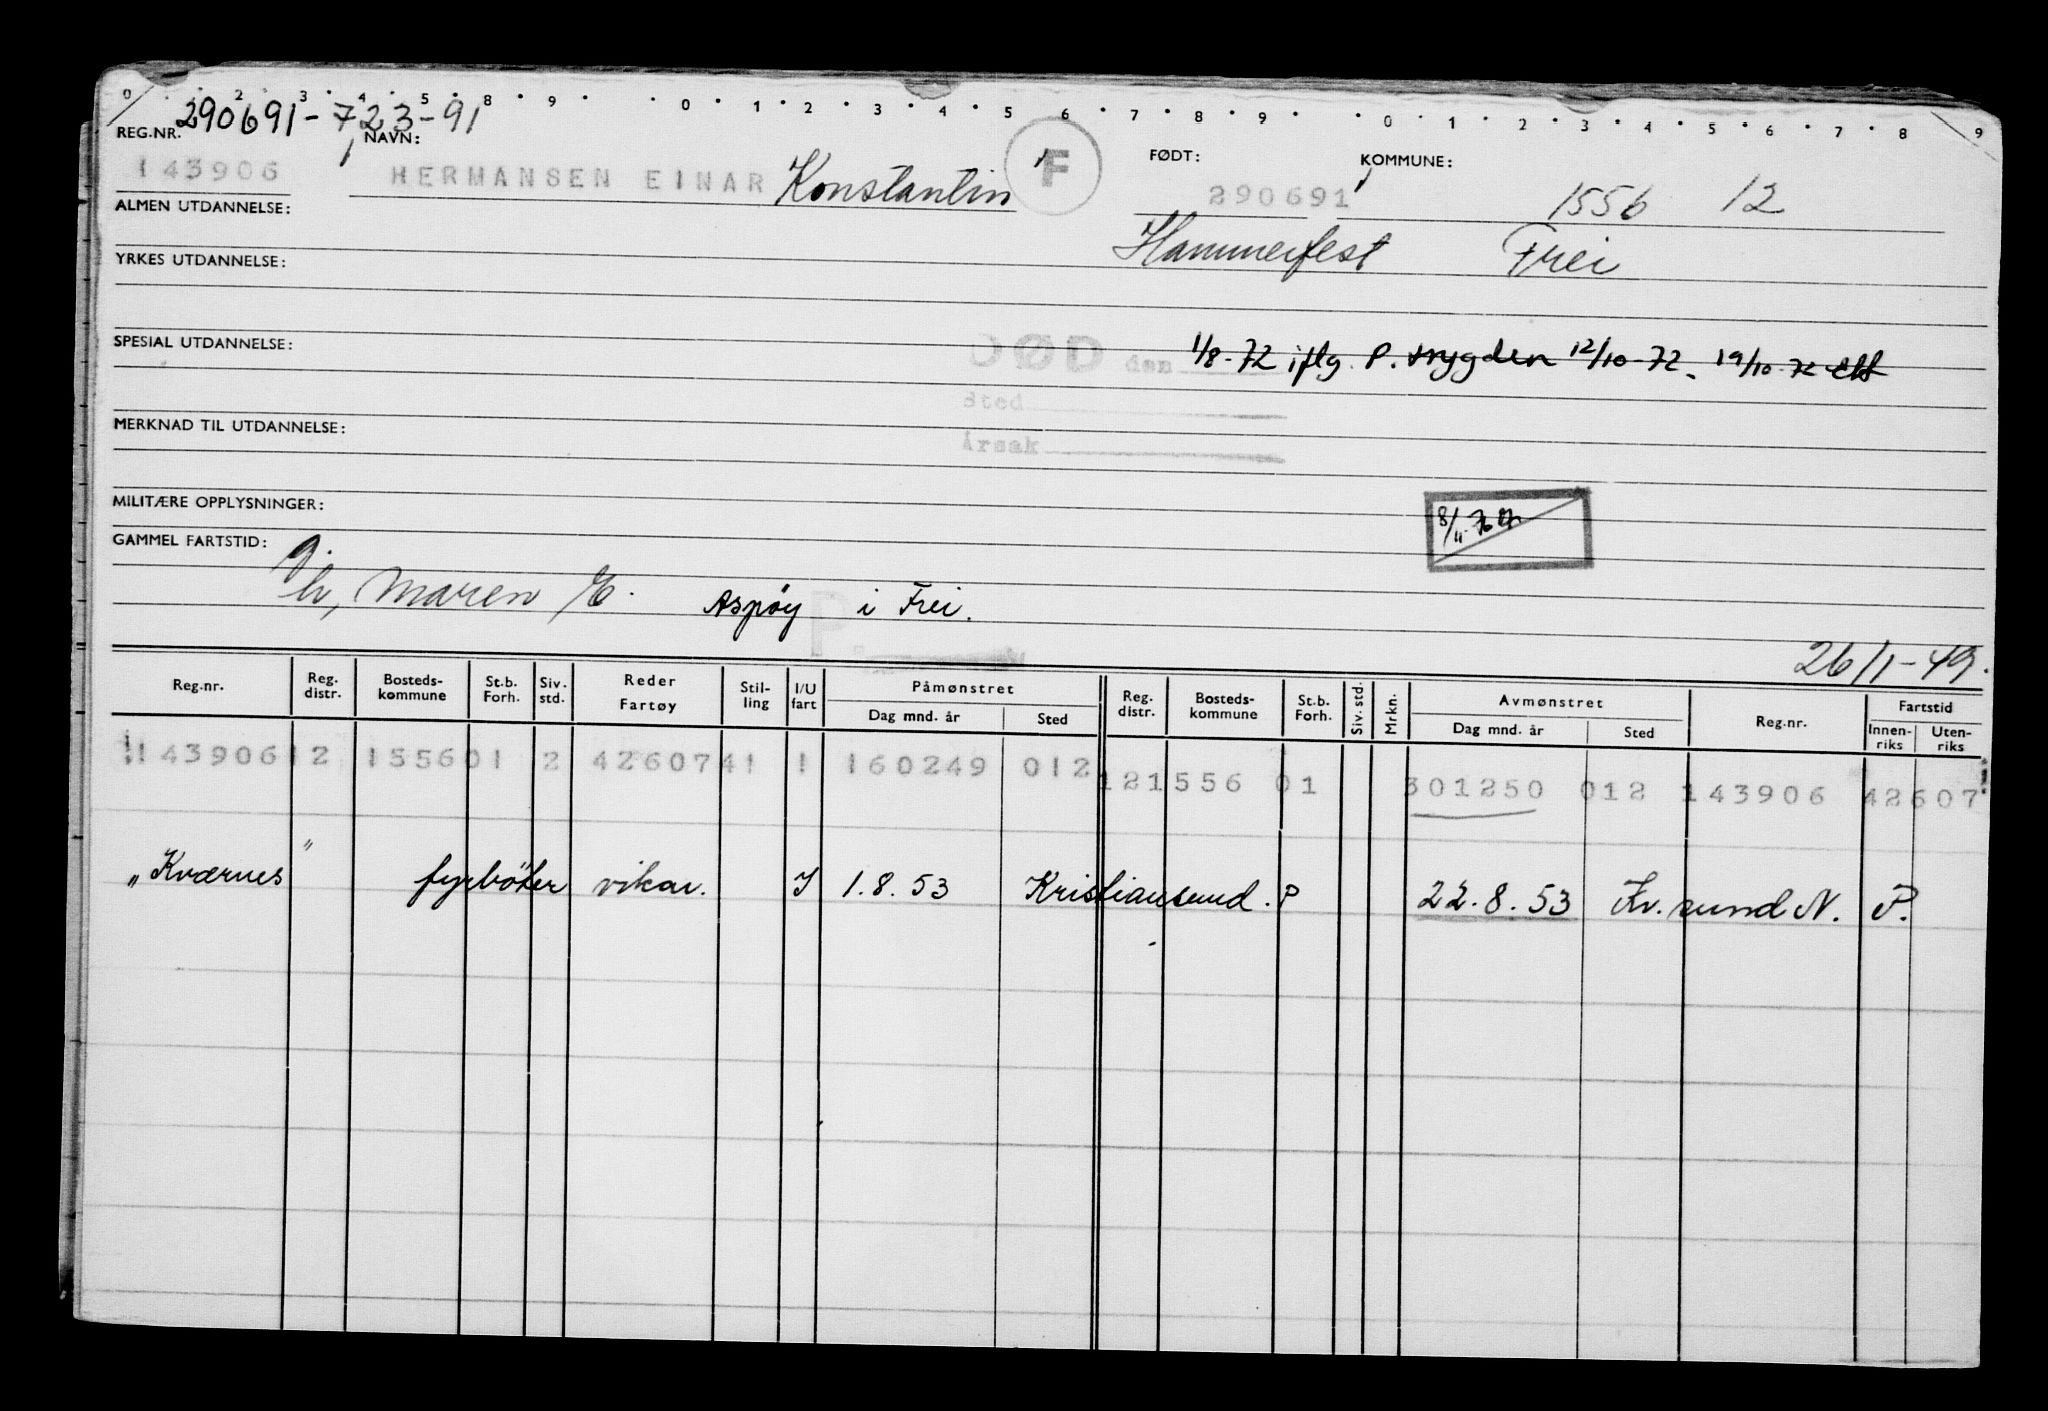 0 . . 2 . 3 . 4 . 5 . 8 . 9 . . 0 . 1 . 2 . 3 . 4 . 5 . 6 . 7 . 8 . 9 . . 0 . 1 . 2 . 3 . 4 . 5 . 6 . 7 . 8 . 9
290691-723-91
REG.NR. NAVN: F FØDT: KOMMUNE:
143906 HERMANSEN EINAR Konstantin 290691 1556 12
ALMEN UTDANNELSE:
Hammerfest Frei
YRKES UTDANNELSE:
SPESIAL UTDANNELSE:
DØD den 1/8-72 iflg. P. trygden 12/10-72. 19/10-72
Sted
Årsak
MERKNAD TIL UTDANNELSE:
MILITÆRE OPPLYSNINGER:
8/11-76
GAMMEL FARTSTID:
g.
h, Maren E. Aspøy i Frei.
P
26/1-49.
Reg.nr. Reg. distr. Bosteds-kommune St.b. Forh. Siv. std. Reder Fartøy Stil-ling I/U fart Påmønstret Dag mnd. år Sted Reg. distr. Bosteds-kommune St.b. Forh. Siv. std. Mrkn. Avmønstret Dag mnd. år Sted Reg.nr. Fartstid Innen-riks Uten-riks
143906 12 1556 01 2 4260741 1 160249 012 12 1556 01 301250 012 143906 42607
"Kværnes" fyrbøter vikar. I 1.8.53 Kristiansund. P 22.8.53 Kr. sund N. P.